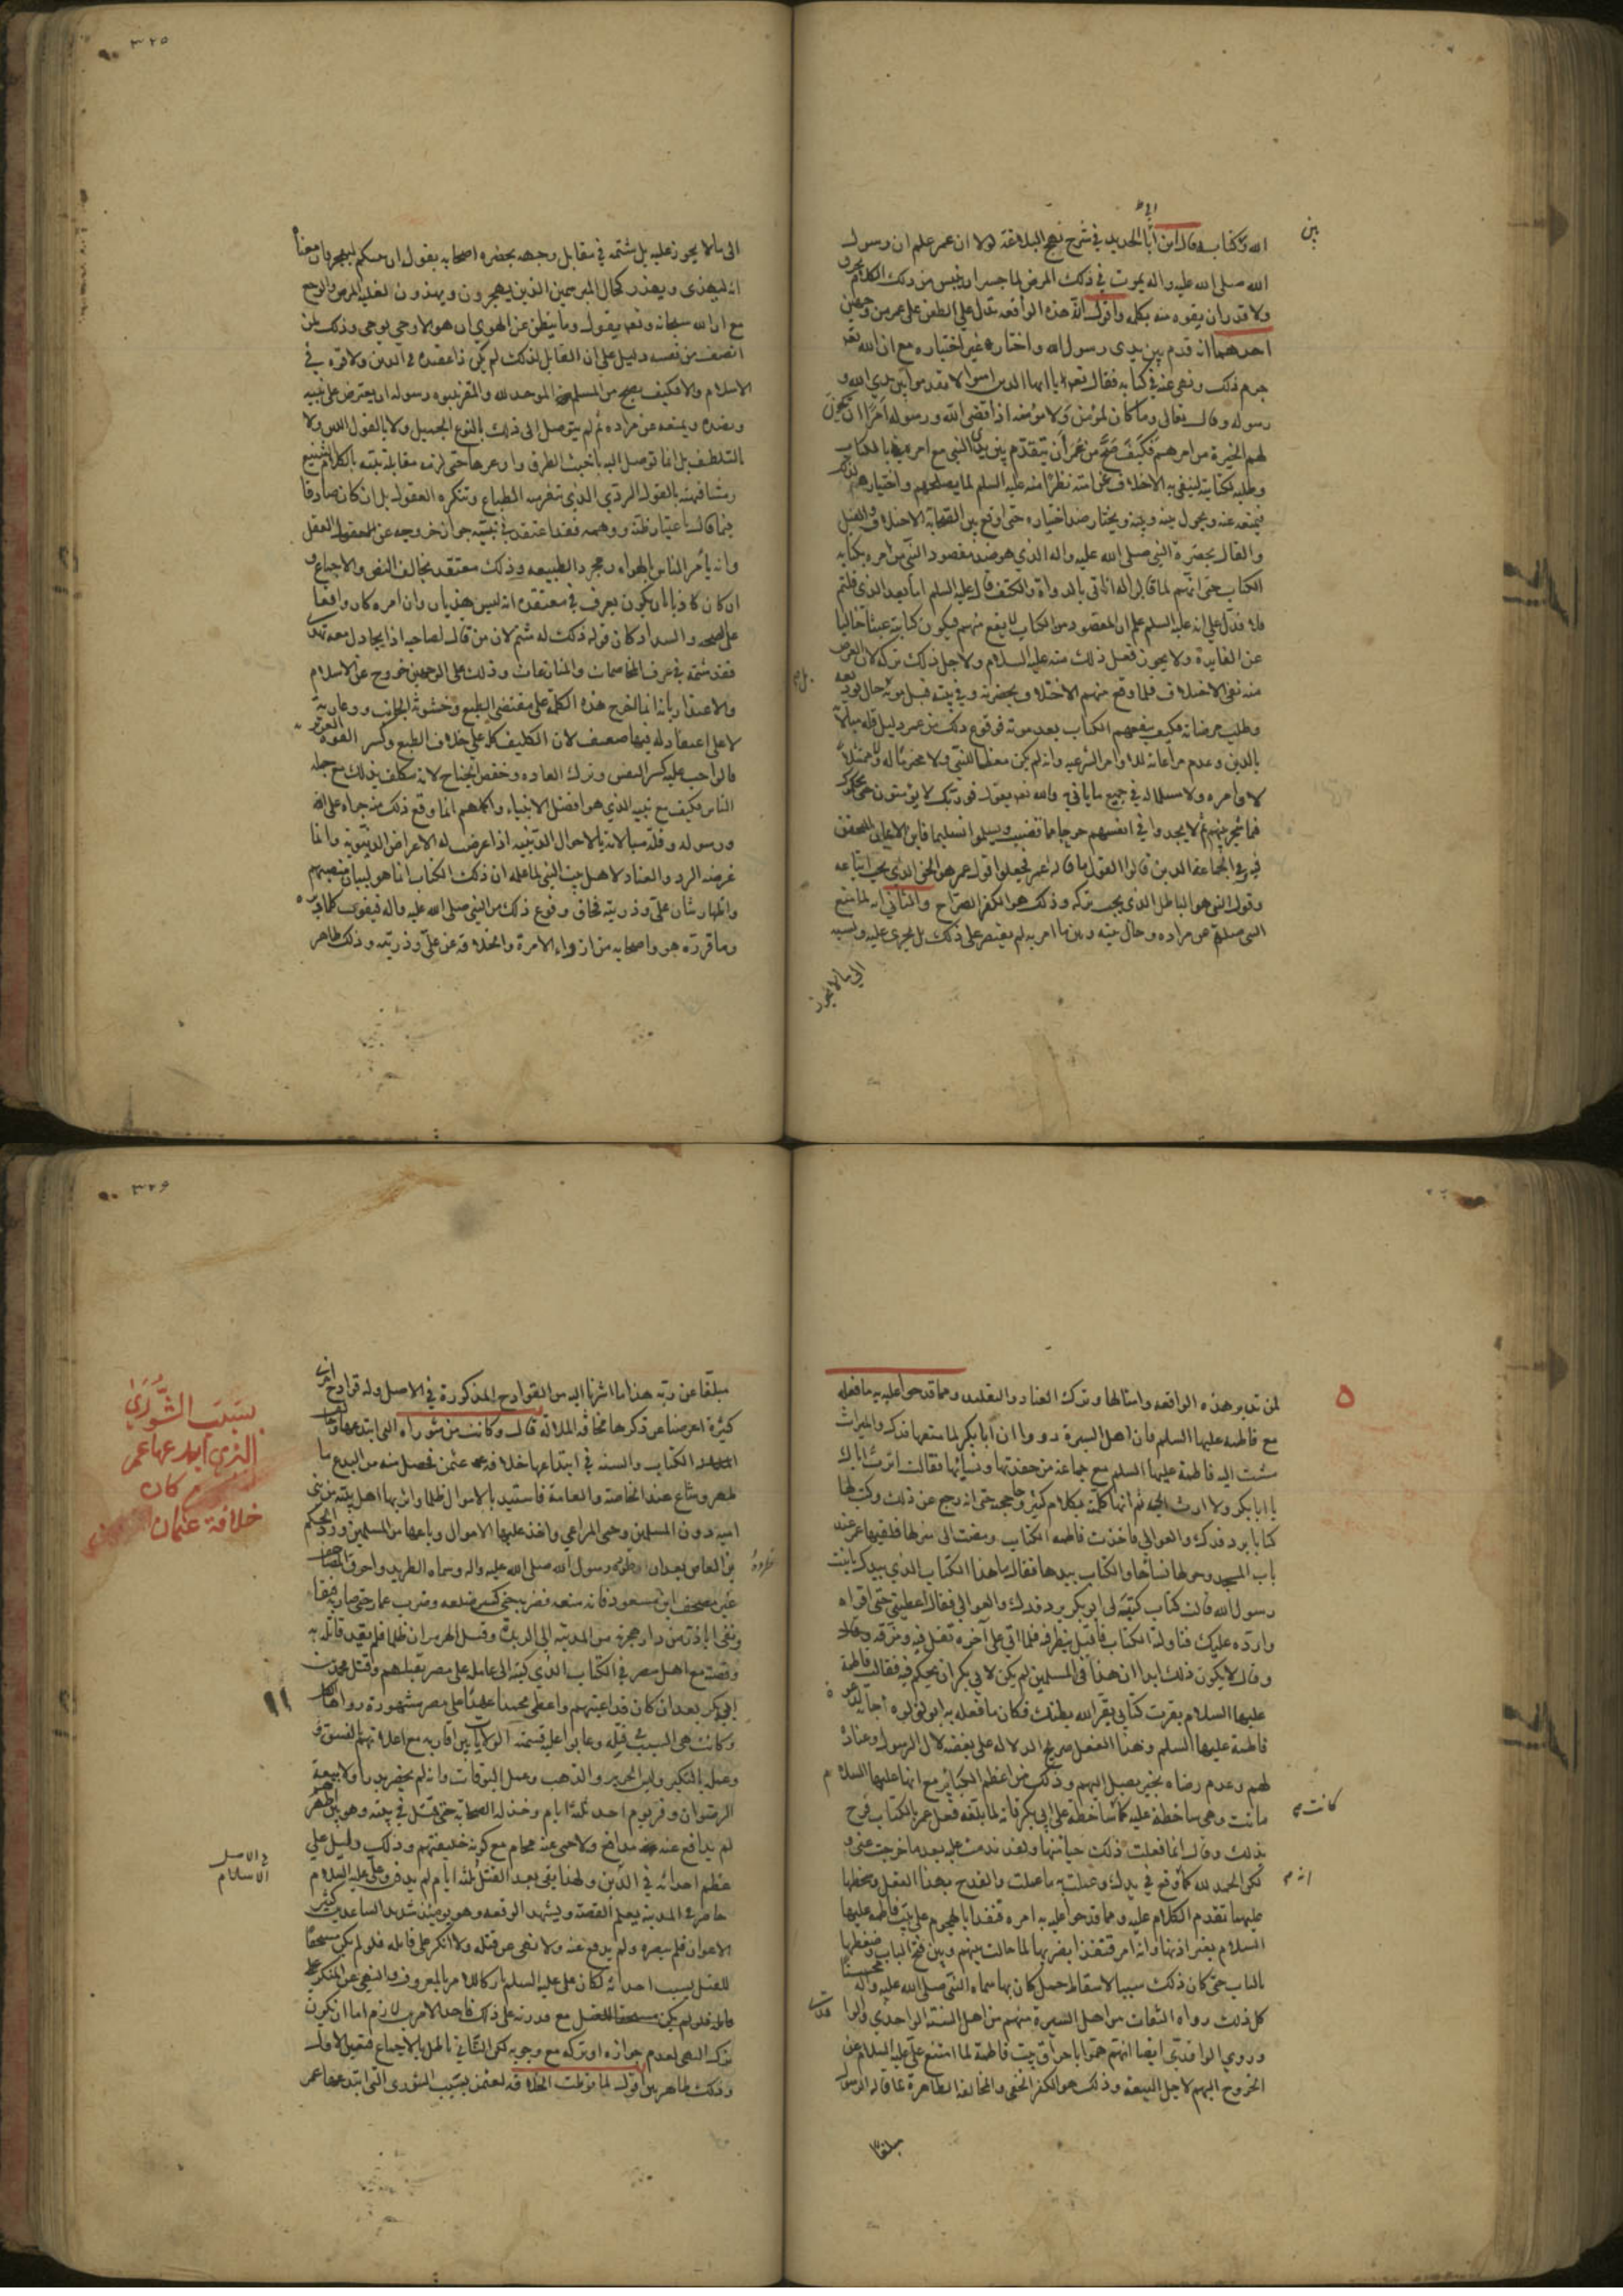 ٣٢٥
بين
الله وكتابه قال ابن أبي الحديد في شرح نهج البلاغة لولا ان عمر علم ان رسول
الله صلى الله عليه واله يموت في ذلك المرض لما جسر ان ينبس من ذلك الكلام بحرف
ولا قدر ان يفوه منه بكلمة واقول ان هذه الواقعة تدل على الطعن على عمر من وجهين
احدهما انه قدم بين يدي رسول الله واختار غير اختياره مع ان الله تعا
حرم ذلك ونهى عنه في كتابه فقال تعا يا ايها الذين امنوا لا تقدموا بين يدي الله و
رسوله وقال تعالى وما كان لمؤمن ولا مؤمنة اذا قضى الله ورسوله امرا ان يكون
لهم الخيرة من امرهم فكيف صح من عمر ان يتقدم بين يدي النبي مع امره بالكتاب
وطلبه لكتابته لينفي به الاختلاف عن امته نظرا منه عليه السلم لما يصلحهم واختياره لهم ذلك
فيمنعه عنه ويحول بينه وبينه ويختار ضد اختياره حتى اوقع بين الصحابة الاختلاف والقيل
والقال بحضرة النبي صلى الله عليه واله الذي هو ضد مقصود النبي من امره بكتابه
الكتاب حتى انهم لما قالوا له الا نأتي بالدواة والكتف قال عليه السلم ابعد الذي قلتم
فدل على انه عليه السلم علم ان المقصود من الكتاب لا يقع منهم فيكون كتابته عبثا خاليا
عن الفايدة ولا يجوز فعل ذلك منه عليه السلام ولاجل ذلك تركه لان الغرض
منه نفي الاختلاف فلما وقع منهم الاختلاف بحضرته وفي بيته قبل موته حال
وطلب مرضاته فكيف ينفعهم الكتاب بعد موته فوقوع ذلك من عمر دليل قلة مبالاته
بالدين وعدم مراعاته للاوامر الشرعيه وانه لم يكن معظما للنبي ولا محترما له ولا ممتثلا
لاوامره ولا مسلما له في جميع ما ياتي به والله تعا يقول فوربك لا يؤمنون حتى يحكموك
فيما شجر بينهم ثم لا يجدوا في انفسهم حرجا مما قضيت ويسلموا تسليما فاين الايمان المتحقق
فيه وفي الجماعة الذين قالوا القول ما قال عمر فجعلوا قول عمر هو الحق الذي يجب اتباعه
وقول النبي هو الباطل الذي يجب تركه وذلك هو الكفر الصراح والثاني انه لما منع
النبي صلعم عن مراده وحال بينه وبين ما امر به لم يقتصر على ذلك بل تجرى عليه ونسبه
الى ما لا يجوز
الى ما لا يجوز عليه بل شتمه في مقابل وجهه بحضرة اصحابه بقوله ان نبيكم ليهجر فان معناه
انه ليهذي ويهذر كحال المبرسمين الذين يهجرون ويهذون لغلبة المرض والوجع
مع ان الله سبحانه وتعا يقول وما ينطق عن الهوى ان هو الا وحي يوحى وذلك لمن
انصف من نفسه دليل على ان القايل لذلك لم يكن ذا عقيدة في الدين ولا قوة في
الاسلام والا فكيف يصح من المسلم الموحد لله والمقر بنبوة رسوله ان يعترض على نبيه
ويصده ويمنعه عن مراده ثم لم يتوصل الى ذلك بالنوع الجميل ولا بالقول اللين ولا
بالتلطف بل انما توصل اليه باخبث الطرق واوعرها حتى لزمه مقابلة نبيه بالكلام الشنيع
ومشافهته بالقول الردي الذي تنفر منه الطباع وتنكره العقول بل ان كان صادقا
فيما قال باعتبار ظنه ووهمه فقد اعتقد في نبيه جواز خروجه عن المعقول العقل
وانه يأمر الناس بالهواء ومجرد الطبيعه وذلك معتقد يخالف النص والاجماع و
ان كان كاذبا بان يكون يعرف في معتقده انه ليس هذيان وان امره كان واقعا
على الصحه والسداد كان قوله ذلك له شتم لان من قال لصاحبه اذا يجادل معه تهذ
فقد شتمه في عرف المخاصمات والمنازعات وذلك على الوجهين خروج عن الاسلام
والاعتذار بانه انما اخرج هذه الكلمة على مقتضى الطبع وخشونة الجانب
لا على اعتقاد له فيها ضعيف لان التكليف كله على خلاف الطبع وكسر القوة
فالواجب عليه كسر النفس وترك العاده وخفض الجناح لانه مكلف بذلك مع جمله
الناس فكيف مع نبيه الذي هو افضل الانبياء واكملهم انما وقع ذلك منه جراة على الله
ورسوله وقلة مبالاته بالاحوال الدينية اذا عرض له الاعراض الدنيوية وانما
غرضه الرد والعناد لاهل بيت النبي لما علم ان ذلك الكتاب انما هو لبيان منصبهم
واظهار شأن علي وذريته فخاف وقوع ذلك من النبي صلى الله عليه واله فيفوت
وما قرره هو واصحابه من ازواء الامرة والخلافة عن علي وذريته وذلك ظاهر
٣٢٦
لمن تدبر هذه الواقعه وامثالها وترك العناد والتقليد ومما قدحوا عليه به ما فعله
مع فاطمة عليها السلم فان اهل السيرة رووا ان ابا بكر لما منعها فدك والميراث
مشت اليه فاطمة عليها السلم مع جماعة من حفدتها ونسائها فقالت اترث اباك
يا ابا بكر ولا ارث ابي ثم انها كلمته بكلام كثير وحاججته حتى انه رجع عن ذلك وكتب لها
كتابا برد فدك والعوالي فاخذت فاطمه الكتاب ومضت الى منزلها فلقيها عمر عند
باب المسجد وحولها نساؤها والكتاب بيدها فقال ما هذا الكتاب الذي بيدك يا بنت
رسول الله قالت كتاب كتبه لي ابو بكر برد فدك والعوالي فقال اعطيني حتى اقراه
وارده عليك فناولته الكتاب فاقبل ينظر فيه فلما اتى على آخره تفل فيه ومزقه
وقال لا يكون ذلك ابدا ان هذا فيء المسلمين لم يكن لابي بكر ان يحكم فيه فقالت فاطمة
عليها السلام بقرت كتابي بقر الله بطنك فكان ما فعله به ابو لؤلؤه اجابة لدعوة
فاطمة عليها السلم وهذا الفعل صريح الدلاله على بغضه لآل الرسول وعناده
لهم وعدم رضاه بخير يصل اليهم وذلك من اعظم الكبائر مع انها عليها السلام
ماتت وهي ساخطة عليه كما كانت ساخطة على ابي بكر فانه لما بلغه فعل عمر بالكتاب فرح
بذلك وقال انما فعلت ذلك حياء منها ولقد ندمت عليه بعد ما خرجت عني و
لكن الحمد لله كما وقع في يدك وعملت به ما عملت والقدح بهذا الفعل وسخطها
عليهما تقدم الكلام عليه ومما قدحوا عليه به امره قنفذا بالهجوم على بيت فاطمة عليها
السلام بغير اذنها وانه امر قنفذا بضربها لما حالت بينهم وبين فتح الباب وضغطها
بالباب حتى كان ذلك سببا لاسقاط حمل كان بها سماه النبي صلى الله عليه واله محسنا
كل ذلك رواه الثقات من اهل السيرة منهم من اهل السنة الواحدي وقالوا
وروى الواقدي ايضا انهم هموا باحراق بيت فاطمة لما امتنع علي عليه السلام عن
الخروج اليهم لاجل البيعة وذلك هو الكفر الخفي والمخالفة الظاهرة لما قاله الرسول
مبلغا
مبلغا عن ربه هذا ما اشرنا اليه من القوادح المذكورة في الاصل وله قوادح اخرى
كثيرة اعرضنا عن ذكرها مخافة الملالة قال وكانت من شوراه التي ابتدعها وخالف
الكتاب والسنه في ابتداعها خلافة عثمن فحصل منه من البدع ما
ظهر وشاع عند الخاصة والعامة فاستبد بالاموال ظلما واثر بها اهل بيته من بني
اميه دون المسلمين وحمى المراعي واخذ عليها الاموال وباعها من المسلمين ورد الحكم
بن العاص بعد ان طرده رسول الله صلى الله عليه واله وسماه الطريد واحرق المصاحف
غير مصحف ابن مسعود فانه منعه فضربه حتى كسر ضلعه وضرب عمار حتى صار به فتقا
ونفى اباذر من دار هجرته من المدينه الى الربذة وقتل الهرمزان ظلما فلم يقيد قاتله به
وقصته مع اهل مصر في الكتاب الذي كتبه الى عامله على مصر بقتلهم وقتل محمد بن
ابي بكر بعد ان كان قد اعتبهم واعطى محمدا عهدا على مصر مشهورة رواها الكل
وكانت هي السبب في قتله وعابوا عليه قسمته الولايات بين اقاربه مع اعلانهم بالفسق
وعمله النكير ولبس الحرير والذهب وعمل البوقات وانه لم يحضر بدرا ولا بيعة
الرضوان وفر يوم احد ثلثة ايام وخذله الصحابة حتى قتل في بيته وهو بين اظهرهم
لم يدافع عنه مدافع ولا حمى عنه محام مع كونه خليفتهم وذلك دليل على
عظم احداثه في الدين ولهذا بقي بعد القتل ثلثة ايام لم يدفن وعلي عليه السلام
حاضر في المدينة يعلم القصة ويشهد الوقعه وهو يومئذ شديد الساعد كثير
الاعوان فلم ينصره ولم يدفع عنه ولا نهى عن قتله ولا انكر على قاتله فلو لم يكن مستحقا
للقتل بسبب احداثه لكان علي عليه السلم تاركا للامر بالمعروف والنهي عن المنكر
قاتله فلو لم يكن مستحقا للقتل مع قدرته على ذلك فاحد الامرين لازم اما ان يكون
ترك النهي لعدم جوازه او تركه مع وجوبه لكن الثاني باطل بالاجماع فتعين الاول
وذلك ظاهر بين اقول لما توليت الخلافة لعثمن بسبب الشورى التي ابتدعها عمر
بسبب الشورى
الذي ابدعها عمر
كان
خلافة عثمان
في الاصل
الاسلام